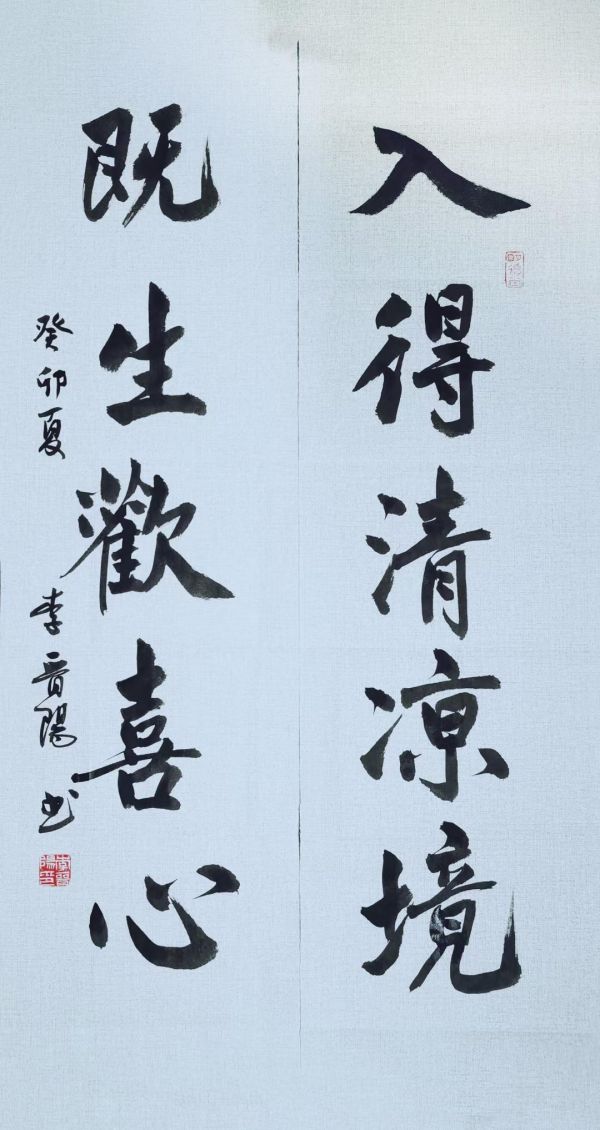 入得清凉境
既生歡喜心
癸卯夏
李晋陽书